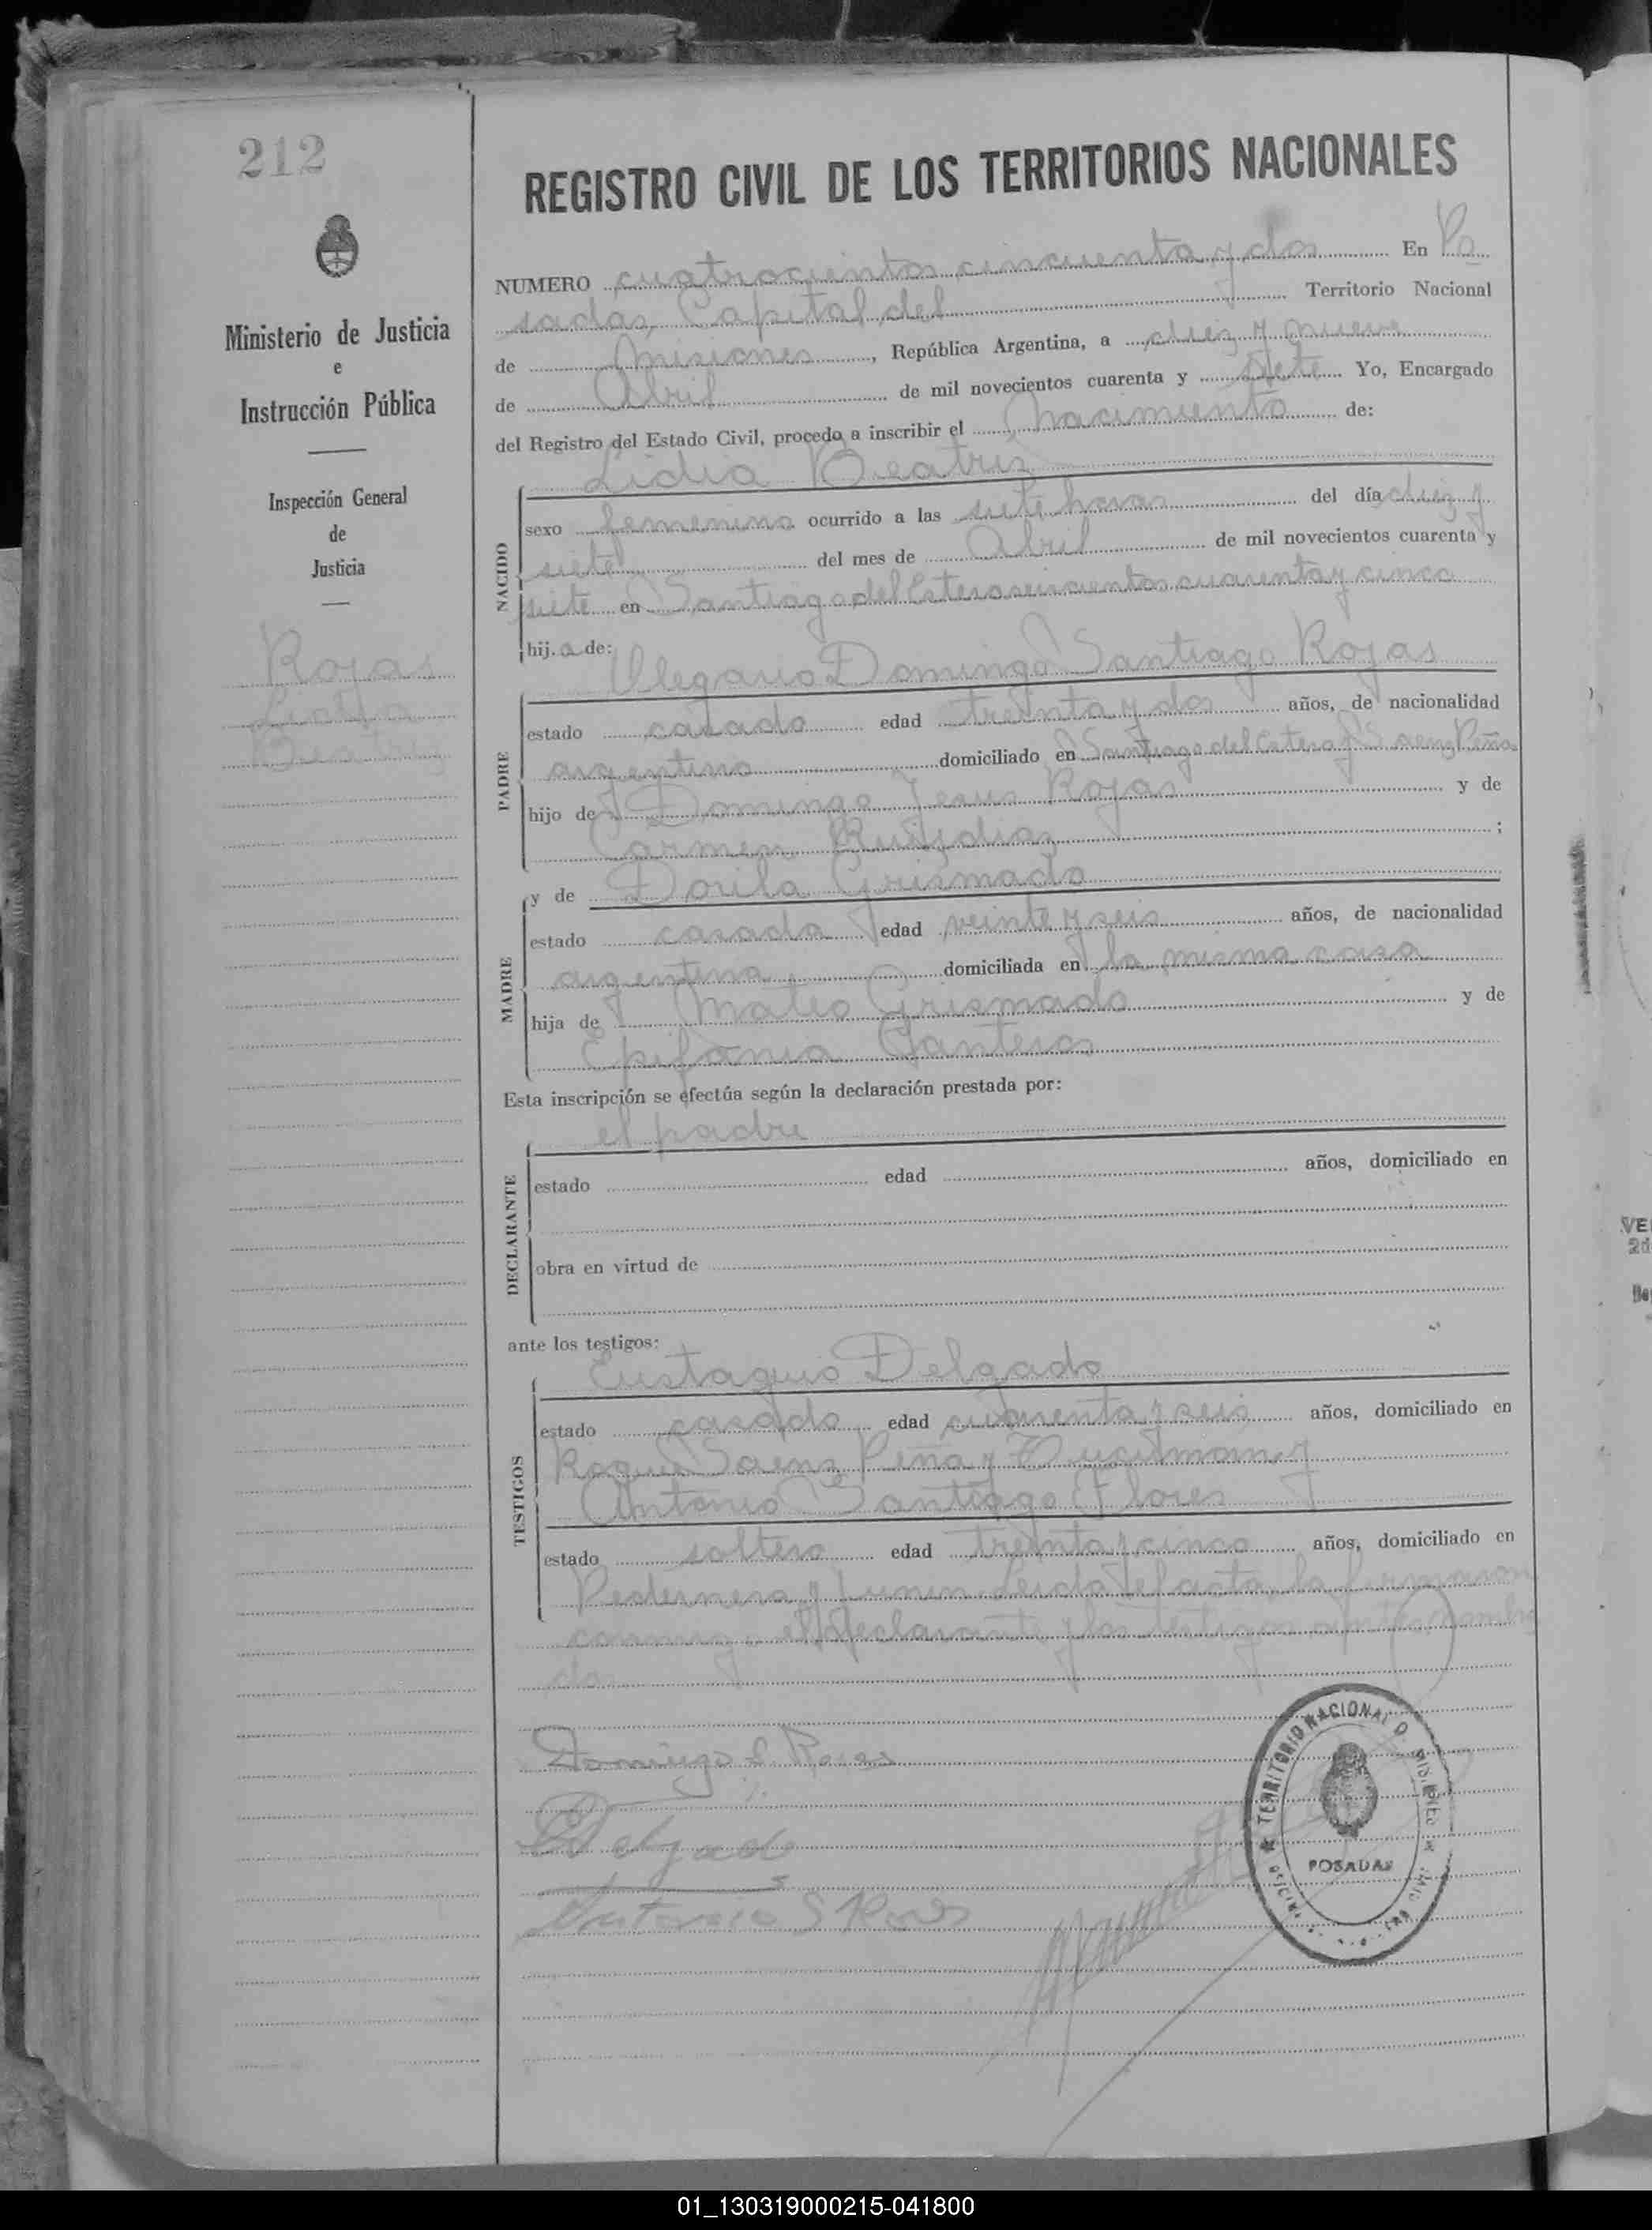 212
Ministerio de Justicia
e
Instrucción Pública
Inspección General
de
Justicia
Rojas
Lidia
Beatriz
REGISTRO CIVIL DE LOS TERRITORIOS NACIONALES
NUMERO cuatrocientos cincuenta y dos En Po
sadas, Capital del Territorio Nacional
de Misiones, República Argentina, a diez y nueve
de Abril de mil novecientos cuarenta y siete Yo, Encargado
del Registro del Estado Civil, procedo a inscribir el Nacimiento de:
Lidia Beatriz
NACIDO
sexo femenino ocurrido a las siete horas del día diez y
siete del mes de Abril de mil novecientos cuarenta y
siete en Santiago del Estero seiscientos cuarenta y cinco
hij.a de:
Olegario Domingo Santiago Rojas
PADRE
estado casado edad treinta y dos años, de nacionalidad
argentino domiciliado en Santiago del Estero y S aenz Peña
hijo de Domingo Jesus Rojas y de
Carmen Ruizdias ;
MADRE
y de Dorila Grismado
estado casada edad veinte y seis años, de nacionalidad
argentina domiciliada en la misma casa
hija de Mateo Grismado y de
Epifania Santeros
Esta inscripción se efectúa según la declaración prestada por:
el padre
DECLARANTE
estado edad años, domiciliado en
obra en virtud de
ante los testigos:
Eustaquio Delgado
TESTIGOS
estado casado edad cuarenta y seis años, domiciliado en
Roque Saenz Peña y Tucuman y
Antonio Santiago Flores
estado soltero edad treinta y cinco años, domiciliado en
Pedernera y Junin. Leida el acta, la firmaron
conmigo el declarante y los testigos
dos
Domingo S. Rojas
E Delgado
Antonio S Flores
TERRITORIO NACIONAL D MISIONES
POSADAS
01_130319000215-041800